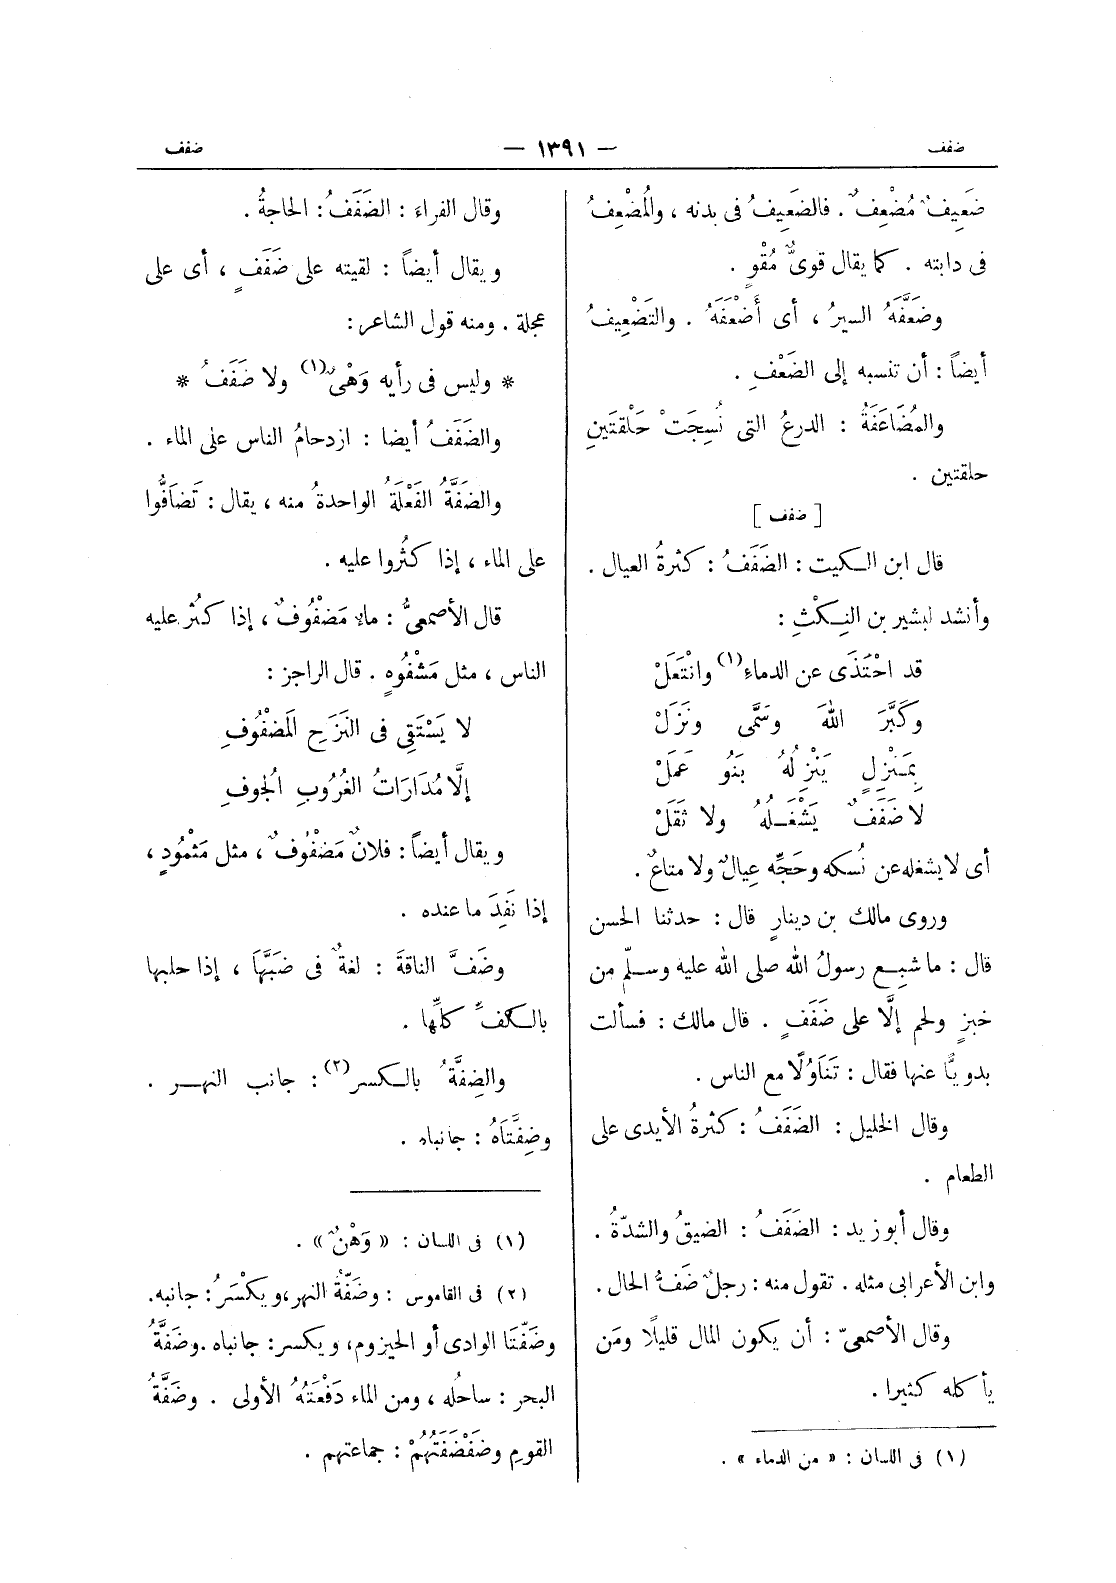 ضفف
— ١٣٩١ —
ضفف
ضَعِيفٌ مُضْعِفٌ . فالضَعِيفُ فى بدنه ، والمُضْعِفُ
فى دابته . كما يقال قوىٌّ مُقْوٍ .
وضَعَّفَهُ السيرُ ، أى أَضْعَفَهُ . والتَضْعِيفُ
أيضاً : أن تنسبه إلى الضَعْفِ .
والمُضَاعَفَةُ : الدرعُ التى نُسِجَتْ حَلْقتَينِ
حلقتين .
[ ضفف ]
قال ابن السكيت : الضَفَفُ : كثرةُ العيال .
وأنشد لبشير بن النِكْثِ :
قد احْتَذَى عن الدماءِ(١) وانْتَعَلْ
وَكَبَّرَ اللهَ وسَمَّى ونَزَلْ
بِمَنْزِلٍ يَنْزِلُهُ بَنُو عَمَلْ
لا ضَفَفٌ يَشْغَلُهُ ولا ثَقَلْ
أى لا يشغله عن نُسكه وحَجِّه عِيالٌ ولا متاعٌ .
وروى مالك بن دينارٍ قال : حدثنا الحسن
قال : ما شبِع رسولُ الله صلى الله عليه وسلّم من
خبزٍ ولحم إلَّا على ضَفَفٍ . قال مالك : فسألت
بدويًّا عنها فقال : تَنَاوُلًا مع الناس .
وقال الخليل : الضَفَفُ : كثرةُ الأيدى على
الطعام .
وقال أبو زيد : الضَفَفُ : الضيقُ والشدّةُ .
وابن الأعرابى مثله . تقول منه : رجلٌ ضَفُّ الحال .
وقال الأصمعىّ : أن يكون المال قليلًا ومَن
يأكله كثيرا .
(١) فى اللسان : « من الدماء » .
وقال الفراءَ : الضَفَفُ : الحاجةُ .
ويقال أيضاً : لقيته على ضَفَفٍ ، أى على
عجلة . ومنه قول الشاعر :
* وليس فى رأيه وَهْىٌ(١) ولا ضَفَفُ *
والضَفَفُ أيضا : ازدحامُ الناس على الماء .
والضَفَّةُ الفَعْلَةُ الواحدةُ منه ، يقال : تَضَافُّوا
على الماء ، إذا كثُروا عليه .
قال الأصمعىُّ : ماءٌ مَضْفُوفٌ ، إذا كثُر عليه
الناس ، مثل مَشْفُوهٍ . قال الراجز :
لا يَسْتَقِى فى النَزَحِ المَضْفُوفِ
إلَّا مُدَارَاتُ الغُرُوبِ الجُوفِ
ويقال أيضاً : فلانٌ مَضْفُوفٌ ، مثل مَثْمُودٍ ،
إذا نَفِدَ ما عنده .
وضَفَّ الناقةَ : لغةٌ فى ضَبَّهَا ، إذا حلبها
بالكفِّ كلِّها .
والضِفَّةُ بالكسر(٢) : جانب النهر .
وضِفَّتَاهُ : جانباه .
(١) فى اللسان : « وَهْنٌ » .
(٢) فى القاموس : وضَفّةُ النهر، ويكْسَرُ : جانبه.
وضَفّتَا الوادى أو الحيزوم، ويكسر: جانباه .وضَفَّةُ
البحر : ساحلُه ، ومن الماء دَفْعَتُهُ الأولى . وضَفَّةُ
القومِ وضَفْضَفَتُهُمْ : جماعتهم .